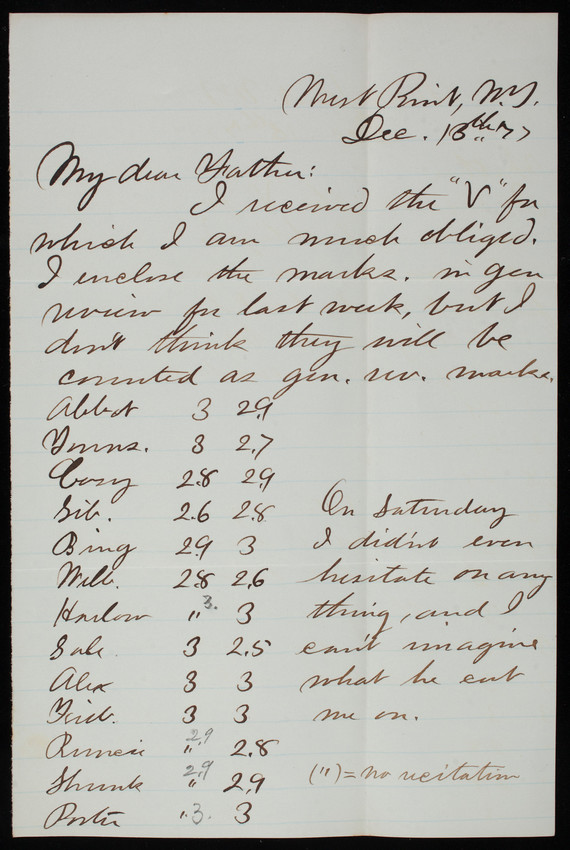 West Point, N.Y.
Dec. 13th 77
My dear Father:
I received the "V" for
which I am much obliged.
I enclose the marks. in gen
review for last week, but I
don't think they will be
counted as gen. rev. marks.
Abbot 3 2.9
Youns. 3 2.7
Casey 2.8 2.9
Sib. 2.6 2.8
Bing 2.9 3
Will. 2.8 2.6
Harlow " 3. 3
Sale. 3 2.5
Alex 3 3
Fieb. 3 3
Runcie " 2.9 2.8
Shunk " 2.9 2.9
Porter " 3. 3
On Saturday
I didn't even
hesitate on any
thing, and I
can't imagine
what he cut
me on.
(") = no recitation